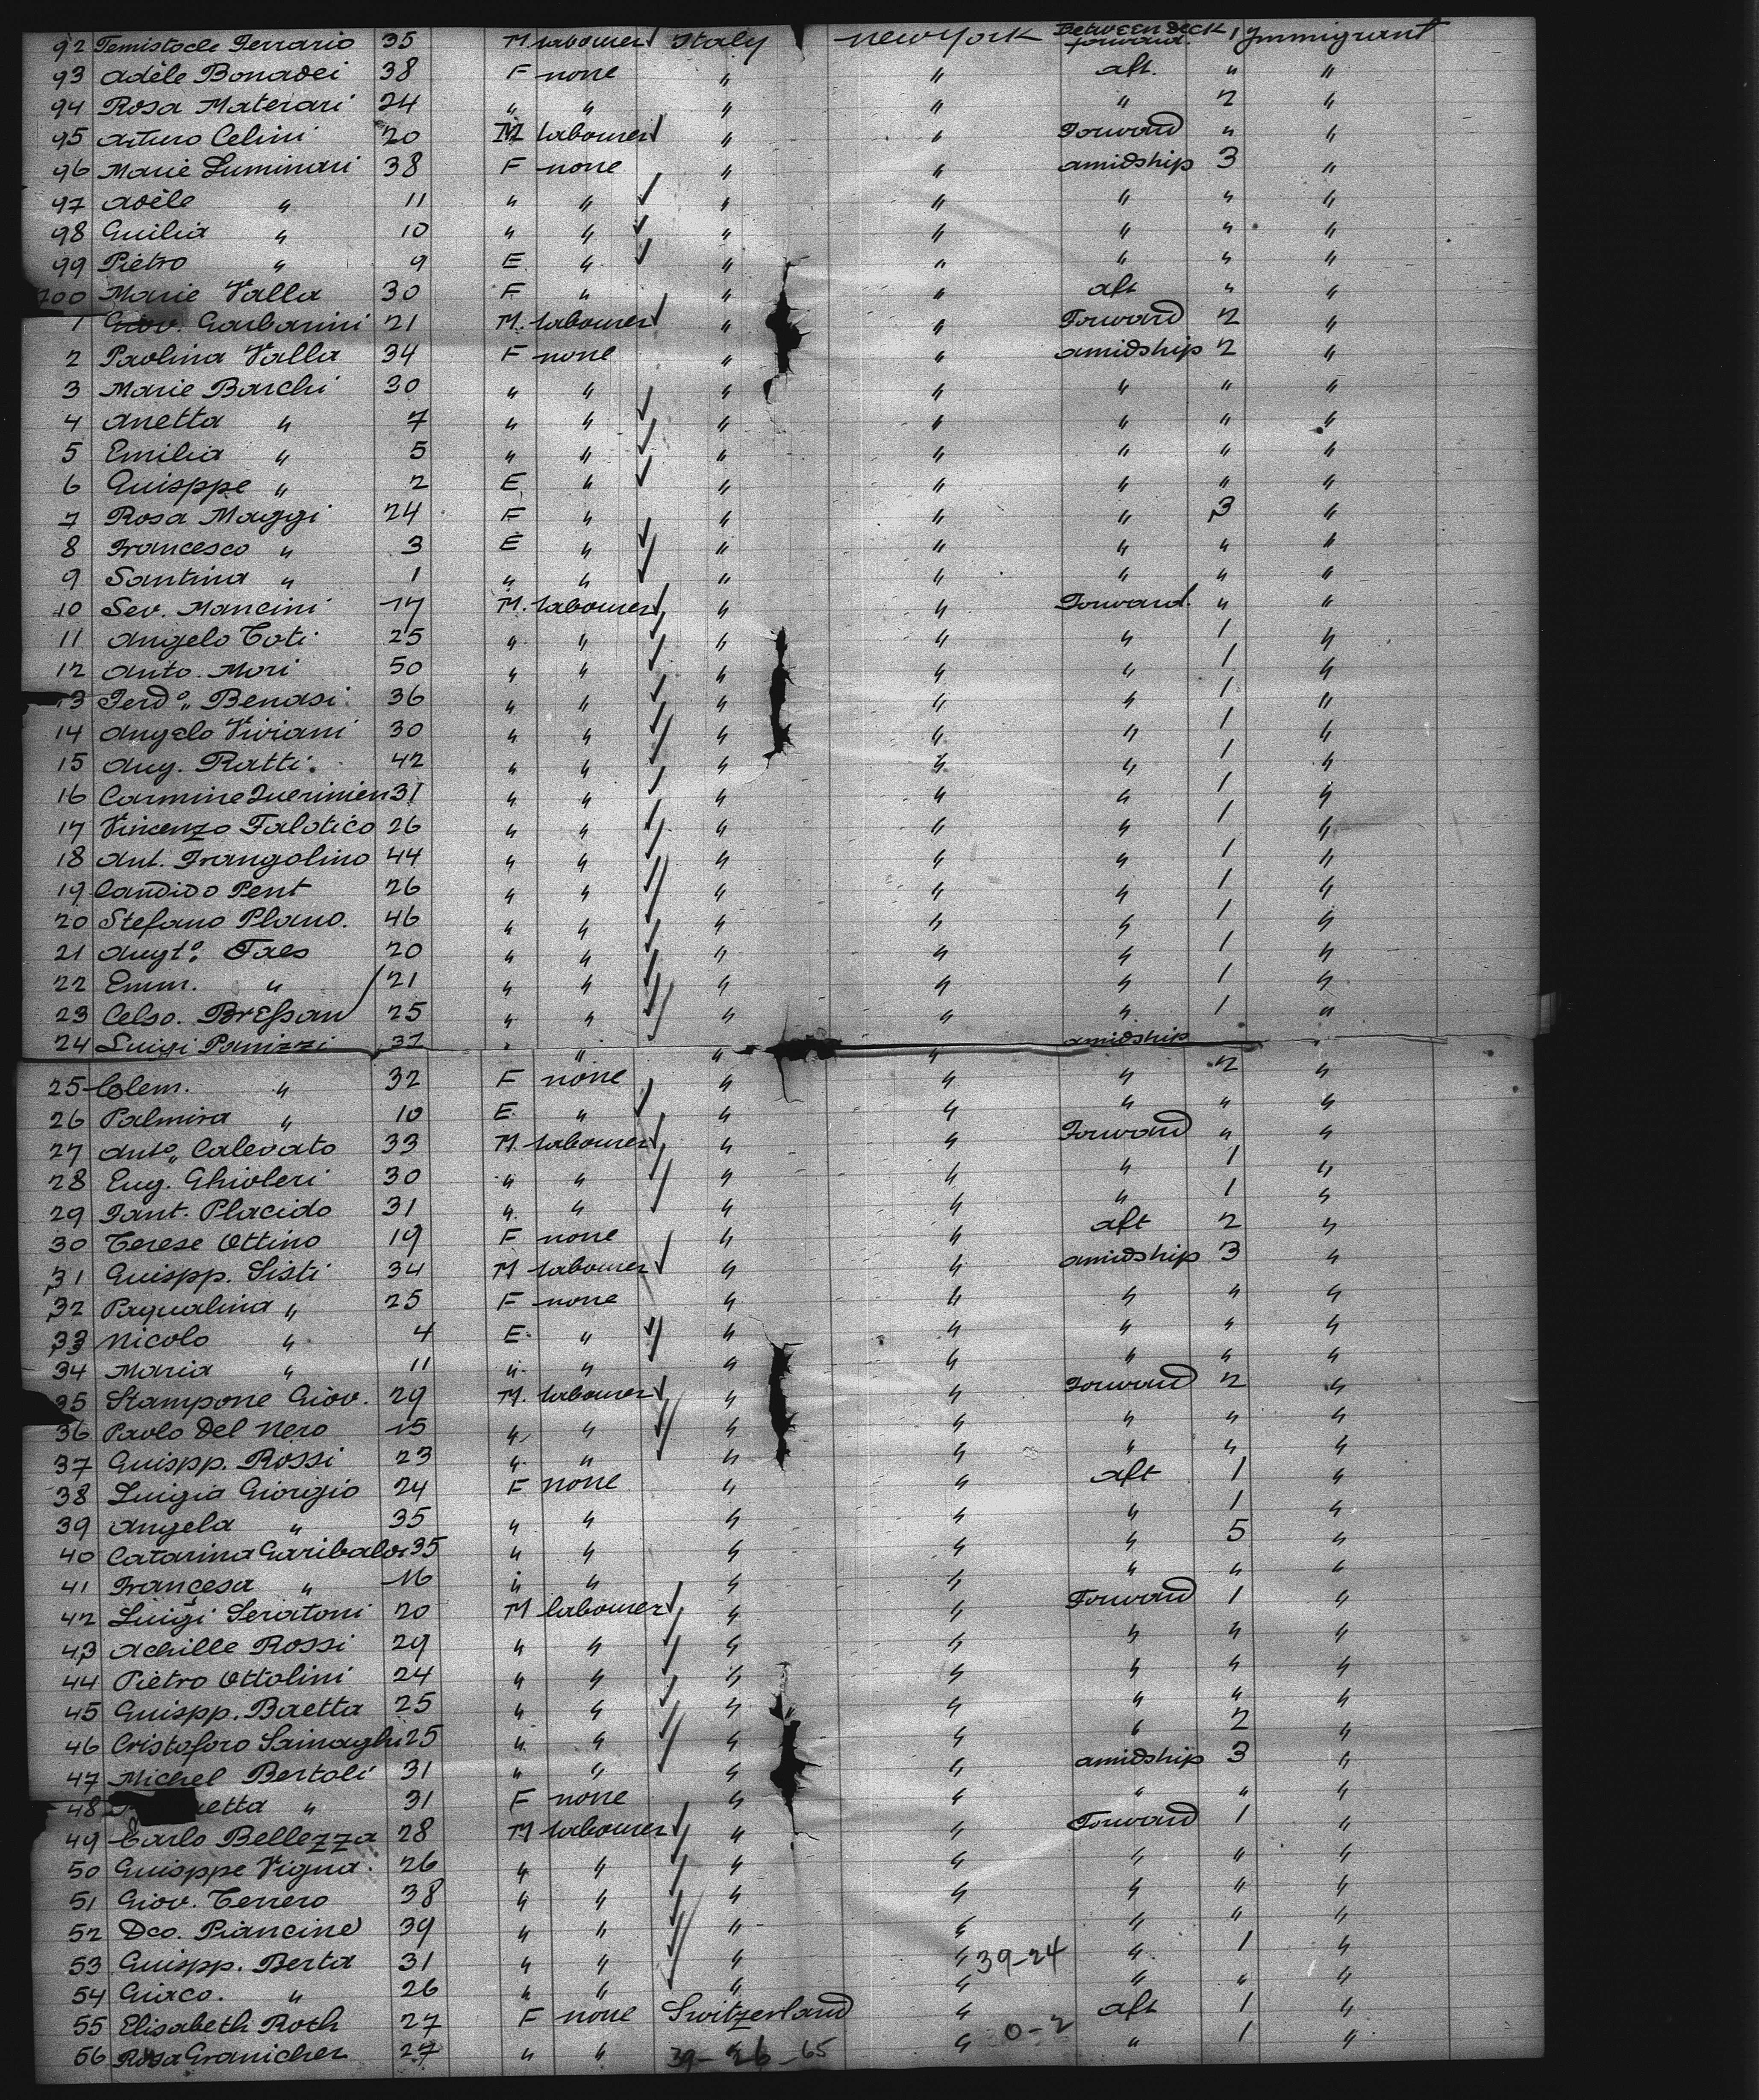 92 Temistocle Ferrario 35 M labourer Italy New York Between deck forward. 1 Immigrant
93 Adèle Bonadei 38 F none " " aft. " "
94 Rosa Materari 24 " " " " " 2 "
95 Arturo Celini 20 M labourer " " Forward " "
96 Marie Luminari 38 F none " " amidship 3 "
97 Adèle " 11 " " " " " " "
98 Guilia " 10 " " " " " " "
99 Pietro " 9 E. " " " " " "
700 Marie Valla 30 F. " " " aft " "
1 Giov. Garbarini 21 M. labourer " " Forward 2 "
2 Paolina Valla 34 F none " " amidship 2 "
3 Marie Barchi 30 " " " " " " "
4 Anetta " 7 " " " " " " "
5 Emilia " 5 " " " " " " "
6 Guisppe " 2 E " " " " " "
7 Rosa Maggi 24 F " " " " 3 "
8 Francesco " 3 E " " " " " "
9 Santina " 1 " " " " " " "
10 Sev. Mancini 17 M. labourer " " Forward. " "
11 Angelo Toti 25 " " " " " 1 "
12 Anto. Mori 50 " " " " " 1 "
13 Ferdo. Benasi 36 " " " " " 1 "
14 Angelo Viviani 30 " " " " " 1 "
15 Aug. Ratti. 42 " " " " " 1 "
16 Carmine 31 " " " " " 1 "
17 Vincenzo Falotico 26 " " " " " 1 "
18 Ant. Frangolino 44 " " " " " 1 "
19 Candido Pent 26 " " " " " 1 "
20 Stefano Plano. 46 " " " " " 1 "
21 Augto. Faes 20 " " " " " 1 "
22 Emm. " 21 " " " " " 1 "
23 Celso. Bressan 25 " " " " " 1 "
24 Luigi Panizzi 37 " " " " amidship
25 Clem. " 32 F none " " " 2 "
26 Palmira " 10 E. " " " " " "
27 Anto. Calevato 33 M. labourer " " Forward " "
28 Eug. Ghioleri 30 " " " " " 1 "
29 Fant. Placido 31 " " " " " 1 "
30 Terese Ottino 19 F none " " aft 2 "
31 Guispp. Sisti 34 M labourer " " amidship 3 "
32 Paqualina " 25 F none " " " " "
33 Nicolo " 4 E. " " " " " "
34 Maria " 11 " " " " " " "
35 Stampone Giov. 29 M. labourer " " Forward 2 "
36 Paolo Del Nero 15 " " " " " " "
37 Guispp. Rossi 23 " " " " " " "
38 Luigia Giorgio 24 F none " " aft 1 "
39 Angela " 35 " " " " " 1 "
40 Catarina Garibaldi 35 " " " " " 5 "
41 Françesa " 16 " " " " " " "
42 Luigi Seratoni 20 M labourer " " Forward 1 "
43 Achille Rossi 29 " " " " " " "
44 Pietro Ottolini 24 " " " " " " "
45 Guispp. Baetta 25 " " " " " " "
46 Cristoforo Sainaghi 25 " " " " " 2 "
47 Michel Bertoli 31 " " " " amidship 3 "
48 " 31 F none " " " " "
49 Carlo Bellezza 28 M labourer " " Forward 1 "
50 Guisppe Vigna. 26 " " " " " " "
51 Giov. Terrero 38 " " " " " " "
52 Dco. Piancine 39 " " " " " " "
53 Guispp. Berta 31 " " " " 39-24 " 1 "
54 Giaco. " 26 " " " " " " "
55 Elisabeth Roth 27 F none Switzerland " aft 1 "
56 Rosa Granicher 27 " " 39-26-65 " 0-2 " 1 "